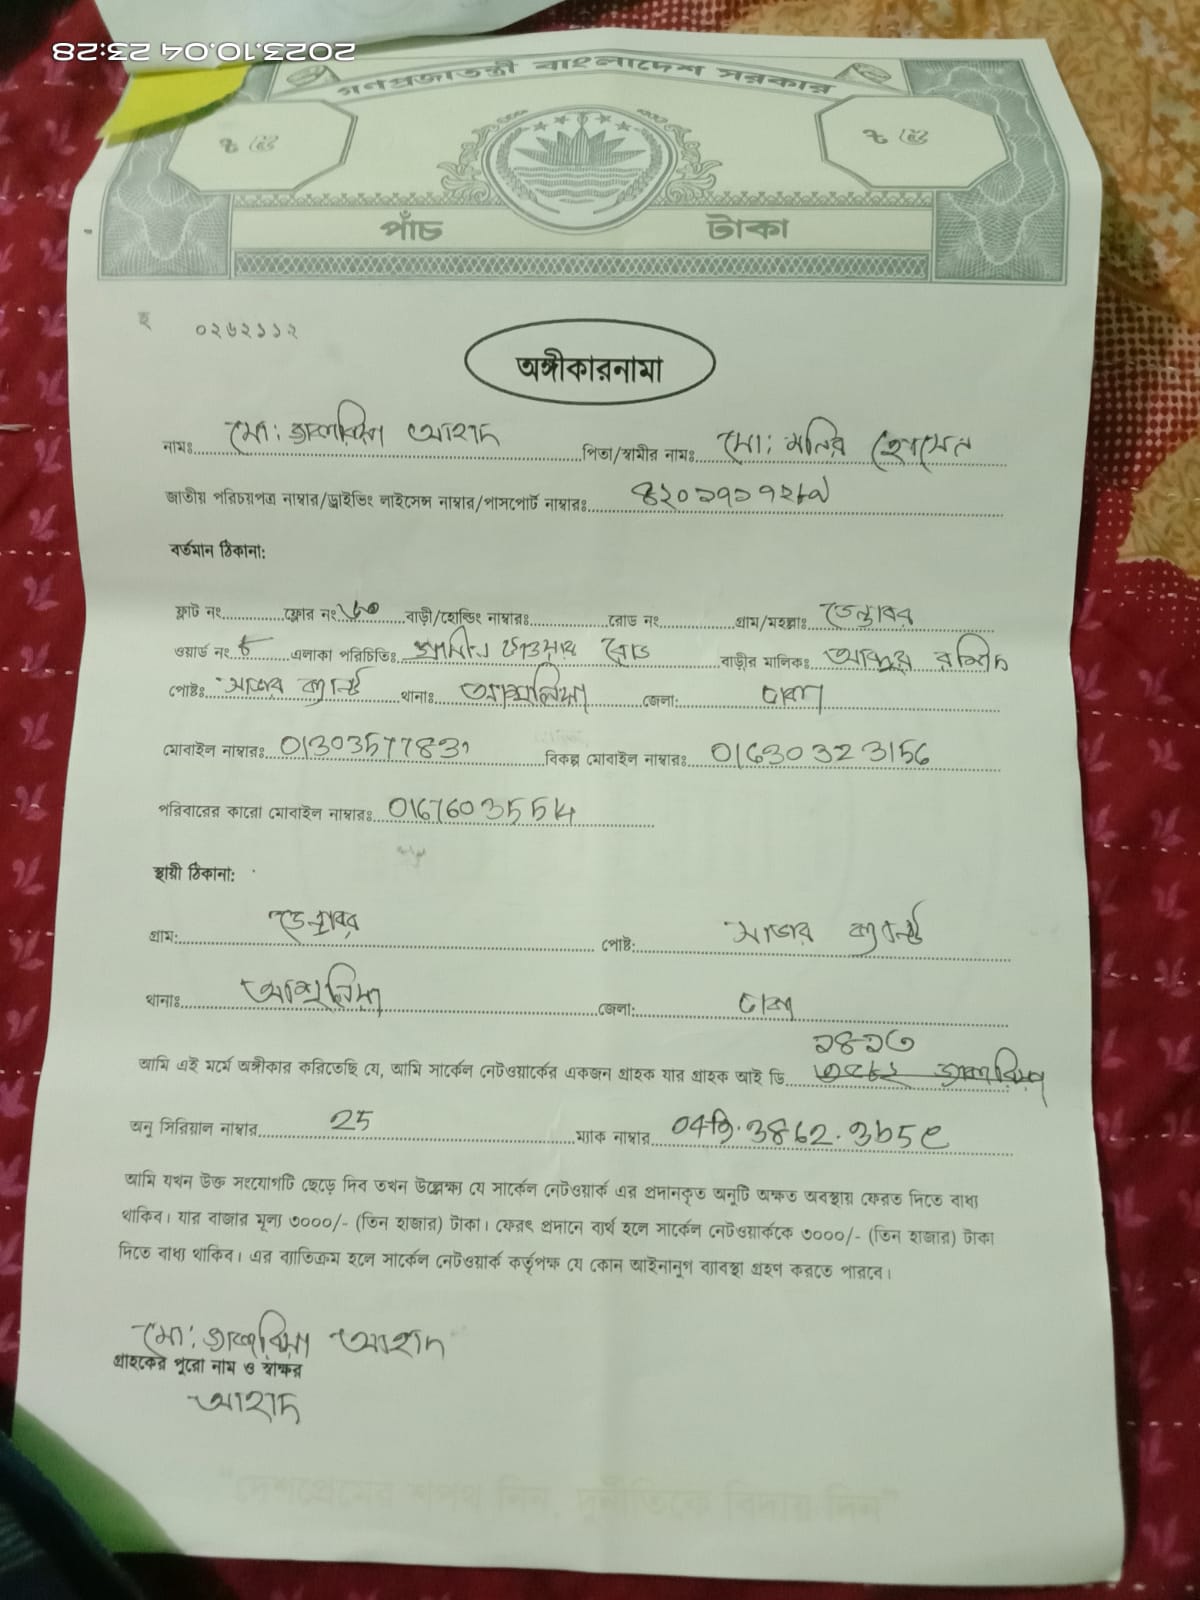 2023.10.04 23:28
গণপ্রজাতন্ত্রী বাংলাদেশ সরকার
৳ ৫ ৳ ৫
পাঁচ টাকা
হ ০২৬২১১২
অঙ্গীকারনামা
নামঃ মো: জাকারিয়া আহাদ পিতা/স্বামীর নামঃ মো: মনির হোসেন
জাতীয় পরিচয়পত্র নাম্বার/ড্রাইভিং লাইসেন্স নাম্বার/পাসপোর্ট নাম্বারঃ
বর্তমান ঠিকানা:
ফ্লাট নং ফ্লোর নং বাড়ী/হোল্ডিং নাম্বারঃ রোড নং গ্রাম/মহল্লাঃ ডেন্ডাবর
ওয়ার্ড নং ৮ এলাকা পরিচিতিঃ রোড বাড়ীর মালিকঃ আব্দুর রশিদ
পোষ্টঃ সাভার ক্যান্ট থানাঃ আশুলিয়া জেলা: ঢাকা
মোবাইল নাম্বারঃ বিকল্প মোবাইল নাম্বারঃ 01630323156
পরিবারের কারো মোবাইল নাম্বারঃ 01676035514
স্থায়ী ঠিকানা:
গ্রাম: ডেন্ডাবর পোষ্ট: সাভার ক্যান্ট
থানাঃ আশুলিয়া জেলা: ঢাকা
১৪১৩
আমি এই মর্মে অঙ্গীকার করিতেছি যে, আমি সার্কেল নেটওয়ার্কের একজন গ্রাহক যার গ্রাহক আই ডি
অনু সিরিয়াল নাম্বার 25 ম্যাক নাম্বার
আমি যখন উক্ত সংযোগটি ছেড়ে দিব তখন উল্লেক্ষ্য যে সার্কেল নেটওয়ার্ক এর প্রদানকৃত অনুটি অক্ষত অবস্থায় ফেরত দিতে বাধ্য
থাকিব। যার বাজার মূল্য ৩০০০/- (তিন হাজার) টাকা। ফেরৎ প্রদানে ব্যর্থ হলে সার্কেল নেটওয়ার্ককে ৩০০০/- (তিন হাজার) টাকা
দিতে বাধ্য থাকিব। এর ব্যাতিক্রম হলে সার্কেল নেটওয়ার্ক কর্তৃপক্ষ যে কোন আইনানুগ ব্যাবস্থা গ্রহণ করতে পারবে।
মো: জাকারিয়া আহাদ
গ্রাহকের পুরো নাম ও স্বাক্ষর
আহাদ
"দেশপ্রেমের শপথ নিন, দুর্নীতিকে বিদায় দিন"